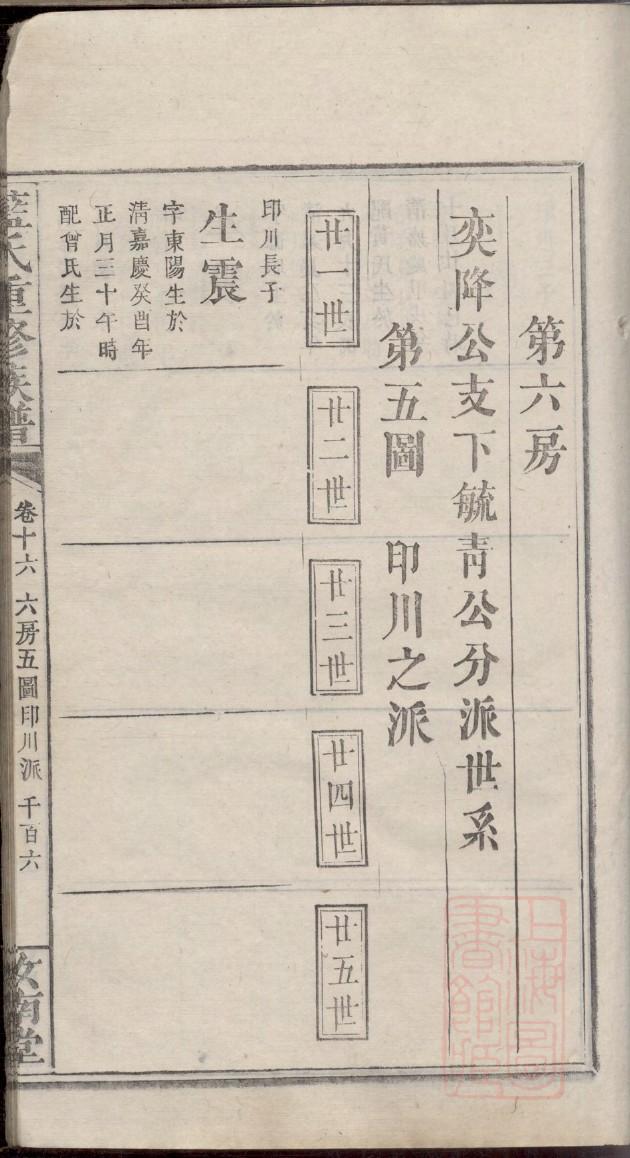 第六房
奕降公支下毓青公分派世系
第五圖 印川之派
廿一世
廿二世
廿三世
廿四世
廿五世
印川長子
生震
字東陽生於
清嘉慶癸酉年
正月三十午時
配曾氏生於
藍氏重修族譜
卷十六 六房五圖印川派 千百六
汝南堂
上海圖書館藏